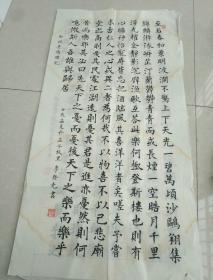 至若春和景明波瀾不驚上下天光一碧萬頃沙鷗翔集
錦鱗游泳岸芷汀蘭鬱鬱青青而或長煙一空皓月千里
浮光躍金靜影沉璧漁歌互答此樂何極登斯樓也則有
心曠神怡寵辱皆忘把酒臨風其喜洋洋者矣嗟夫予嘗
求古仁人之心或異二者為何哉不以物喜不以己悲廟
堂之高則憂其民處江湖遠則憂其君是進亦憂然則何
時而樂其必曰先天下之憂而憂後天下之樂而樂乎
噫微斯人吾誰與歸